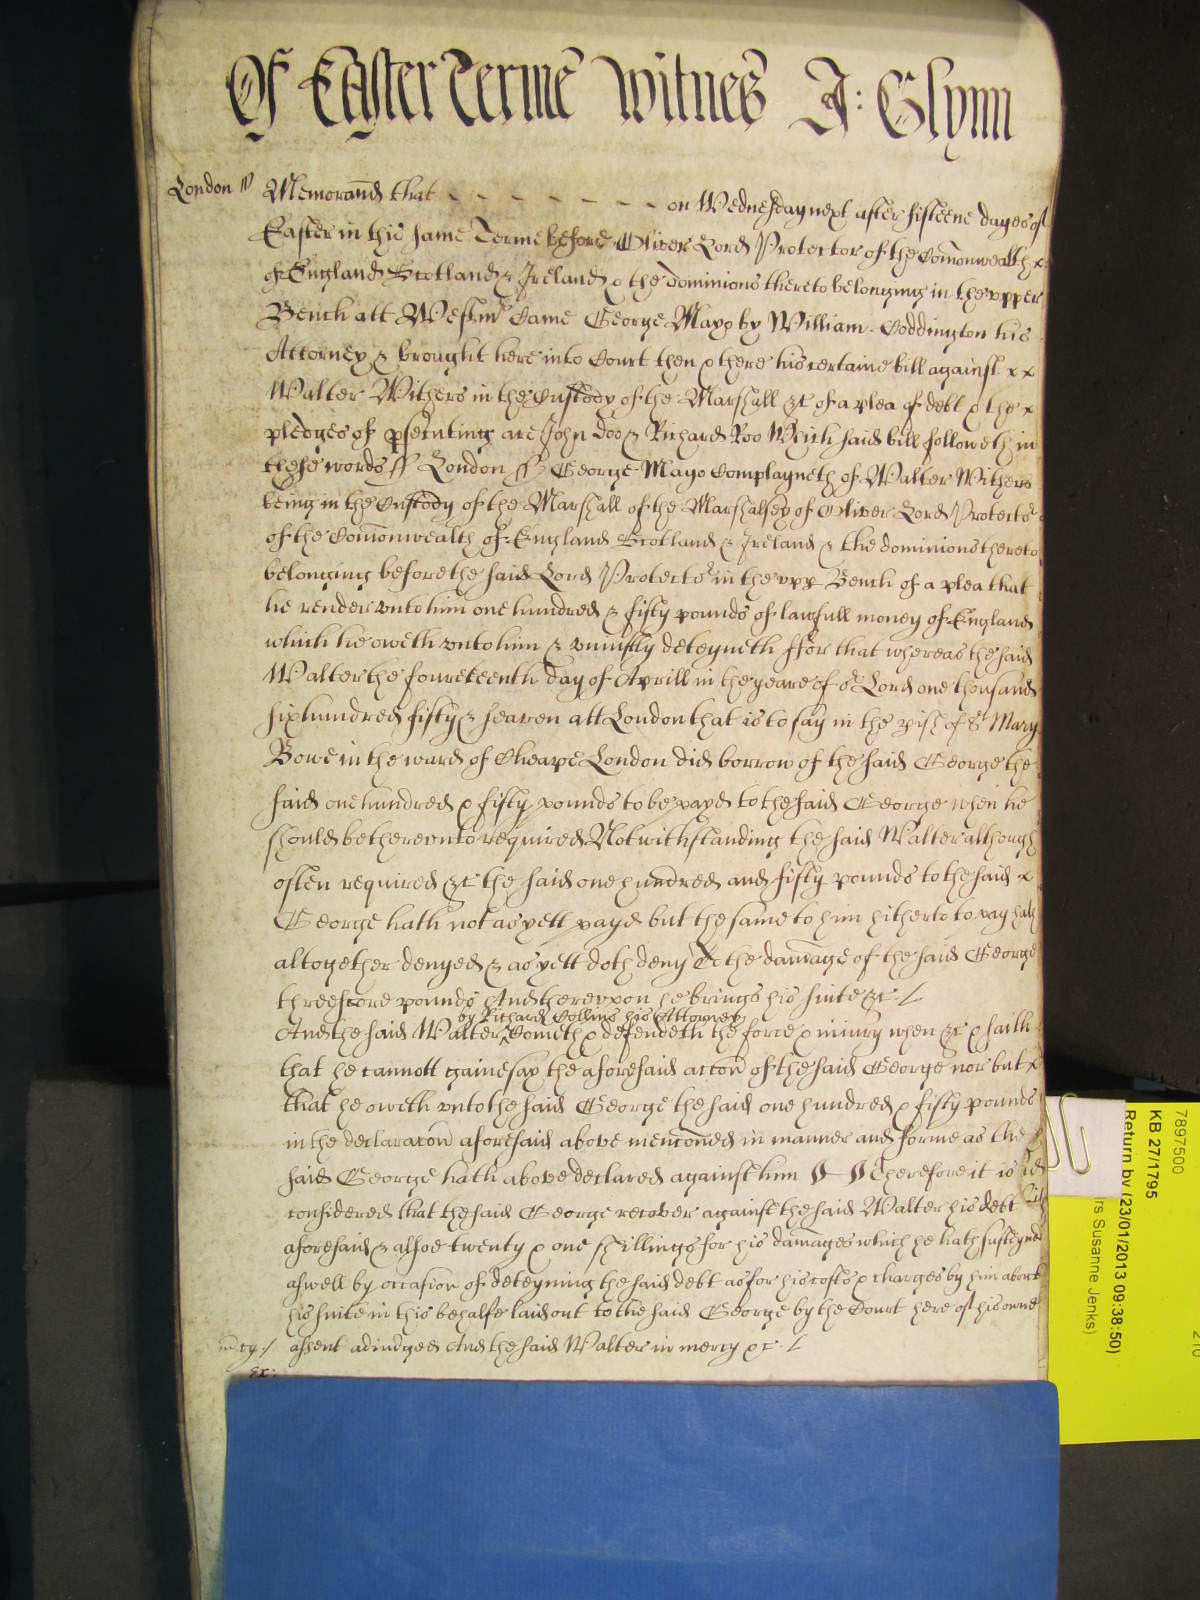 Of Easter Terme Witnes J: Glynn
London ss Memorand that - - - - - - - on Wednesday next after fifteene dayes of
Easter in this same Terme before Oliver Lord Protector of the Comonwealth x
of England Scotland & Ireland & the dominions thereto belonging in the upper
Bench att Westmr Came George Mayo by William Coddington his
Attorney & brought here into Court then & there his certaine bill against x x
Walter Withers in the Custody of the Marshall &c of a plea of debt & the x
pledges of psecuting are John Doo & Richard Roo Which said bill followeth in
these words ss London ss George Mayo Complayneth of Walter Withers
being in the Custody of the Marshall of the Marshalsey of Oliver Lord Protector
of the Comonwealth of England Scotland & Ireland & the dominions thereto
belonging before the said Lord Protector in the upp Bench of a plea that
he render unto him one hundred & fifty pounds of lawfull money of England
which he oweth unto him & uniustly deteyneth ffor that whereas the said
Walter the fourteenth day of Aprill in the yeare of or Lord one thousand
six hundred fifty & seaven att London that is to say in the pish of St Mary
Bowe in the ward of Cheape London did borrow of the said George the
said one hundred & fifty pounds to be payd to the said George when he
should be thereunto required Notwithstanding the said Walter although
often required &c the said one hundred and fifty pounds to the said x
George hath not as yett payd but the same to him hitherto to pay hath
altogether denyed & as yett doth deny To the damage of the said George
threescore pounds And thereupon he brings his suite &c
by Richard Collins his Attorney
And the said Walter Cometh & defendeth the force & iniury when &c & saith
that he cannott gainesay the aforesaid accon of the said George nor but x
that he oweth unto the said George the said one hundred & fifty pounds
in the declaracon aforesaid above menconed in manner and forme as the
said George hath above declared against him Therefore it is
considered that the said George recover against the said Walter his debt
aforesaid & alsoe twenty & one shillings for his damages which he hath susteyned
aswell by occasion of deteyning the said debt as for his costs & charges by him about
his suite in this behalfe laid out to the said George by the Court here of his owne
mcy / assent adiudged And the said Walter in mercy &c
Ex:
7897500
KB 27/1795
Return by (23/01/2013 09:38:50)
rs Susanne Jenks)